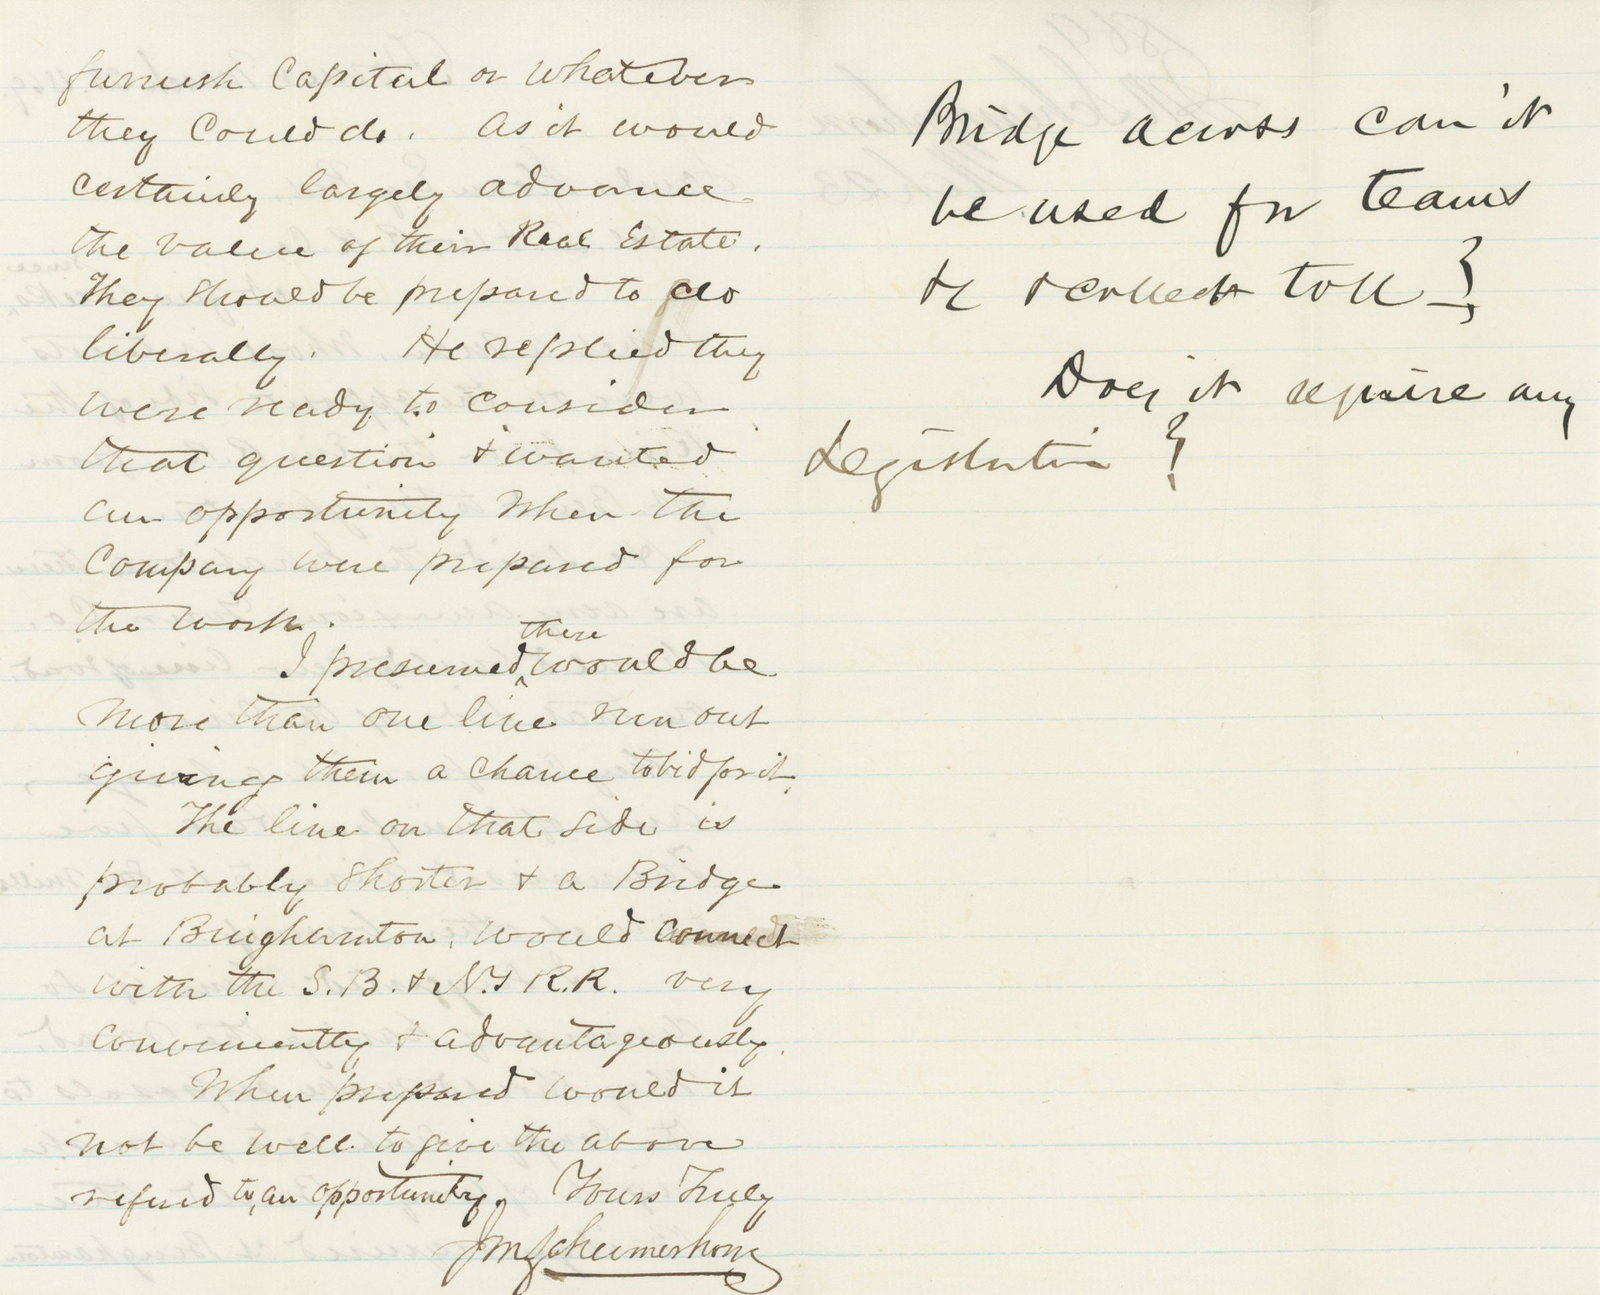 furnish Capital or whatever
they Could do. As it would
certainly largely advance
the value of their Real Estate.
They should be prepared to do
liberally. He replied they
were ready to consider
that question & wanted
an opportunity When the
Company were prepared for
the work.
there
I presumed ^ would be
more than one line run out
giving them a chance to bid for it.
The line on that side is
probably shorter & a Bridge
at Binghamton. would Connect
with the S.B. & N.Y R.R. very
conveniently & advantageously.
When prepared would it
not be well to give the above
refered to, an opportunity. Yours Truly
J M Schermerhorn
Bridge across can it
be used for teams
&c & collect toll?
Does it require any
Legislation?